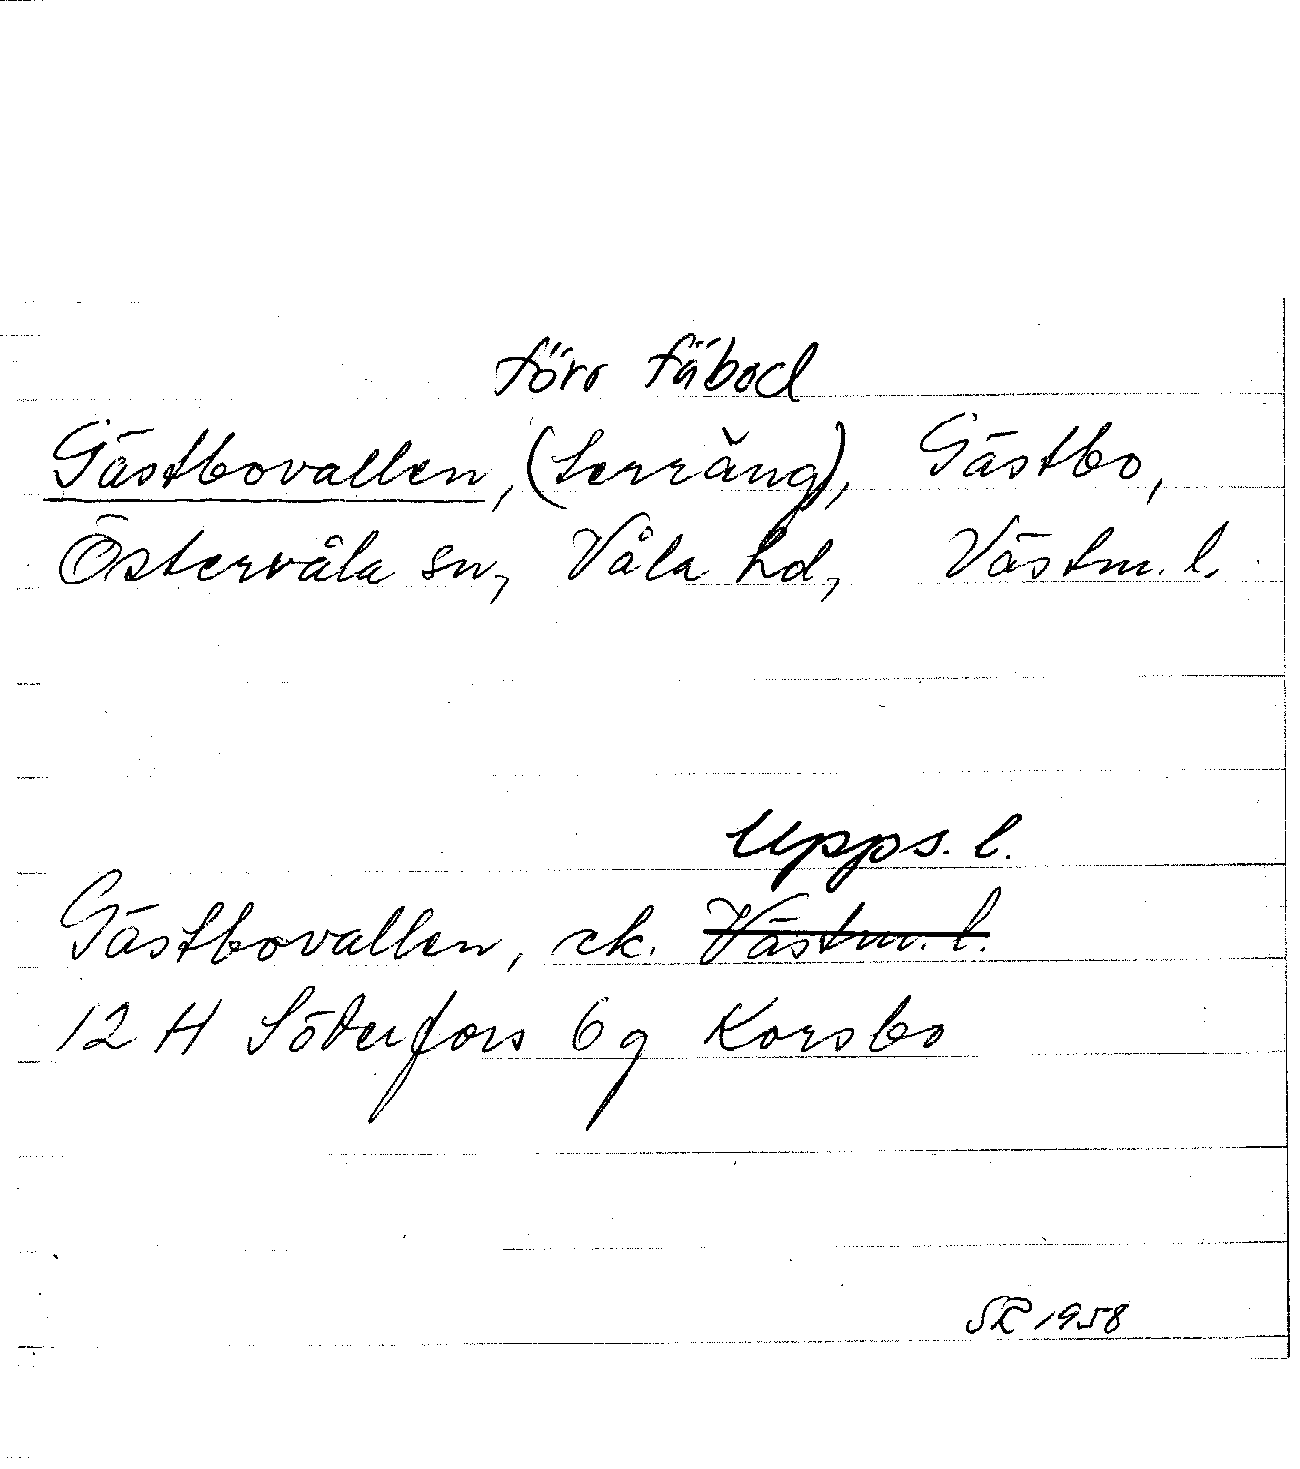 förr fäbod
Gästbovallen, (terräng), Gästbo,
Östervåla sn, Våla hd, Västm. l.
Upps. l.
Gästbovallen, ek. Västm. l.
12 H Söderfors 6 g Korsbo
1958